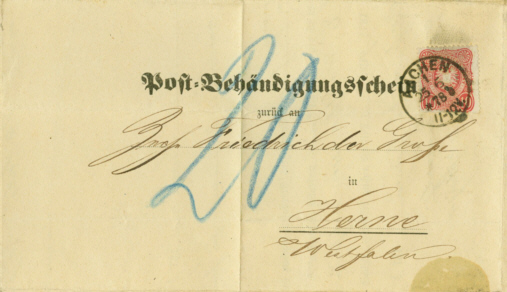 Post-Behändigungsschein
zurück an
Zeche Friedrich der Große
in
Herne
Westfalen
20
AACHEN